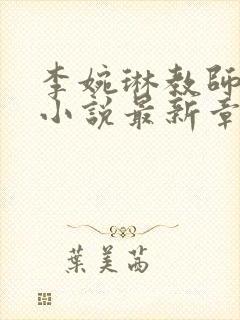 李婉琳教師
小說最新章
葉美茜